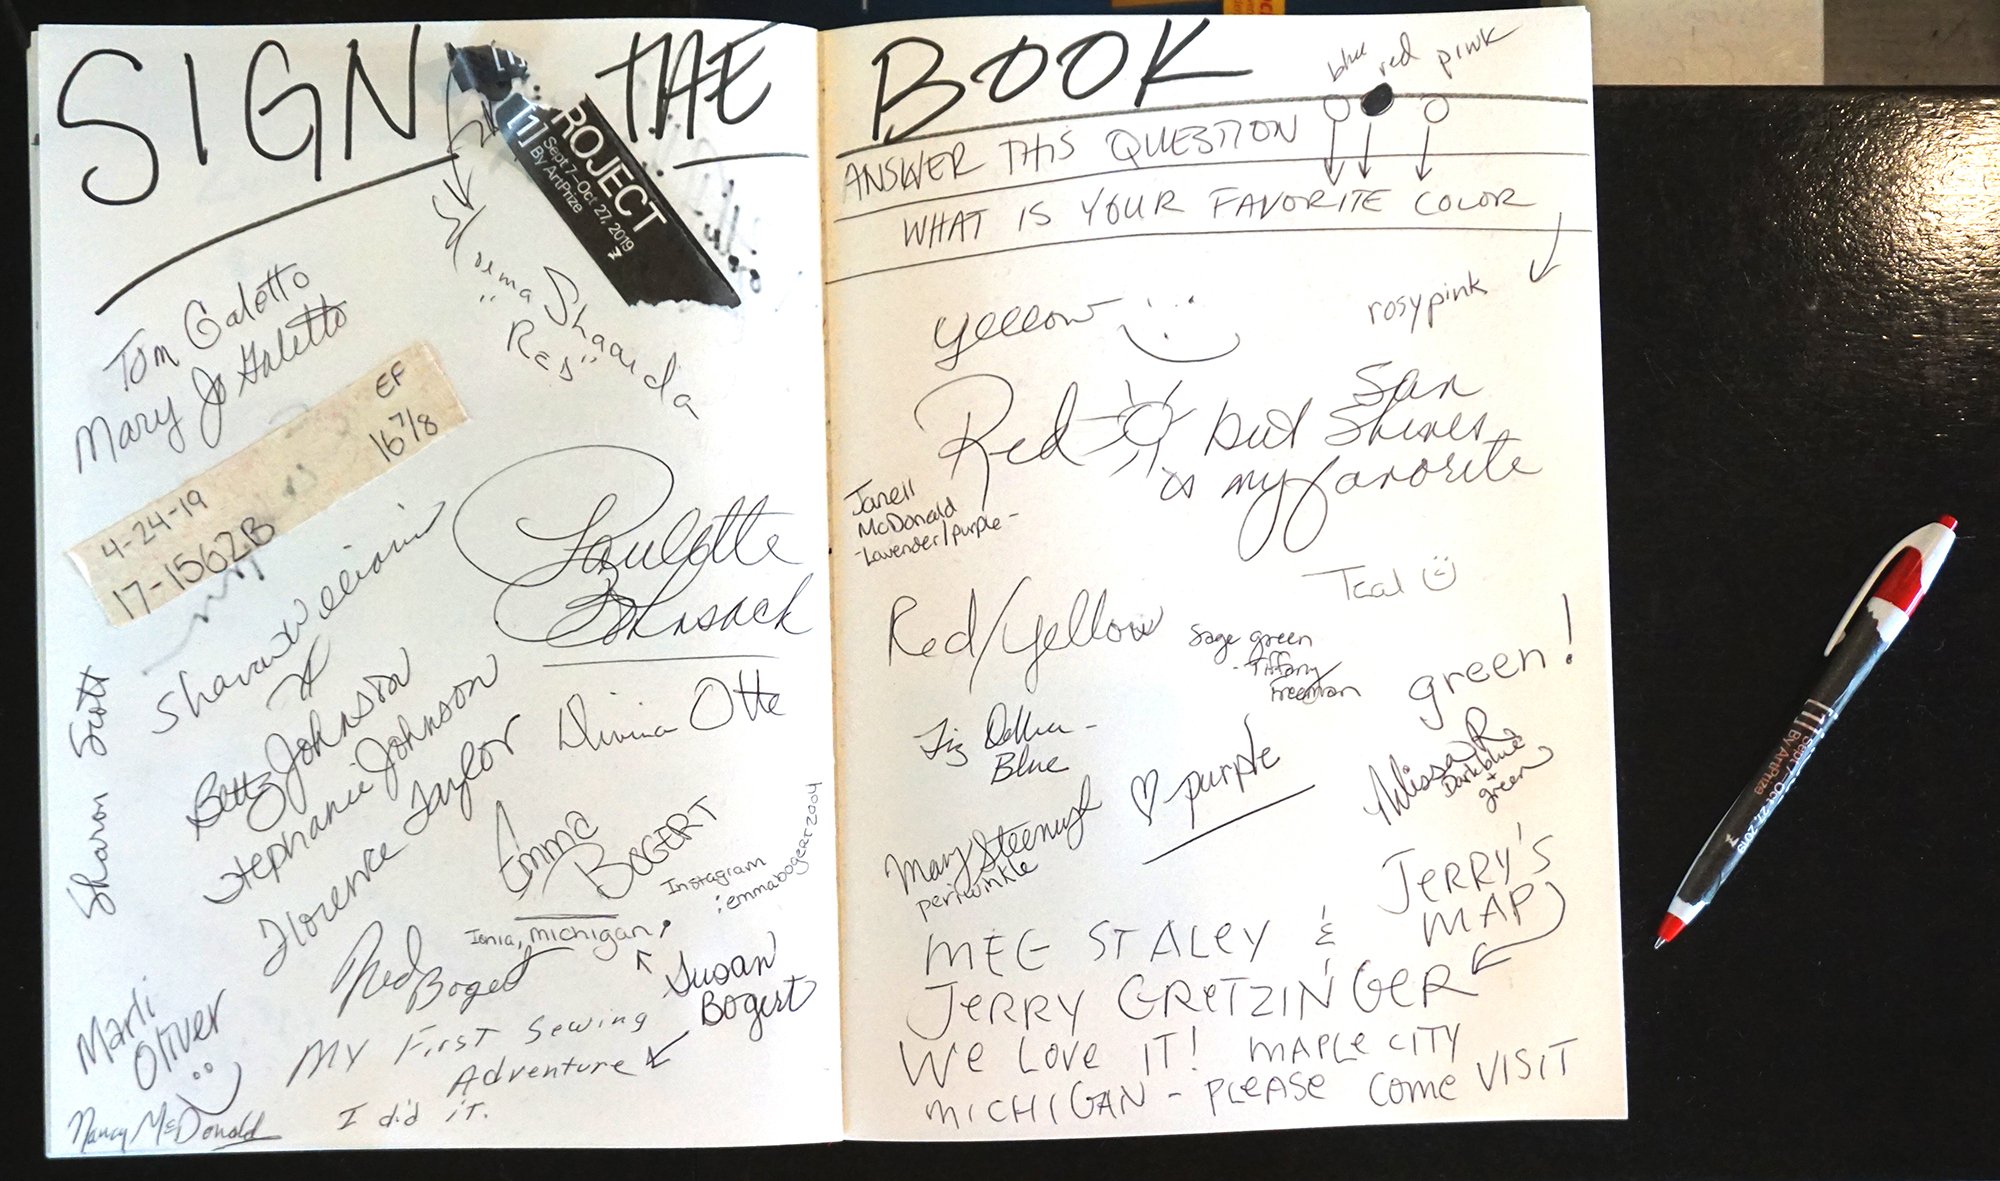 SIGN THE
[1]
PROJECT
Sept.7–Oct 27, 2019
By ArtPrize
Shaarda
"RED"
Tom Galotto
Mary Jo Galetto
EF
16 7/8
4-24-19
17-1562B
Sharon Williams
Paulette
Bohnsack
Sharon Scott
Betty Johnson
Stephanie Johnson
Florence Taylor
Divina Otte
Emma
BOGERT
Instagram
:emmabogert2004
Ionia, michigan,
Bogert
Susan
Bogert
My First Sewing
Adventure
I did it.
Marli
Oliver
Nancy McDonald
BOOK
blue red pink
ANSWER THIS QUESTION
WHAT IS YOUR FAVORITE COLOR
yellow
rosy pink
Red but Sun
Shines
is my favorite
Janell
McDonald
-lavender/purple-
Teal
Red/Yellow
Sage green
-Tiffany
Freeman
green!
Blue
purple
Melissa R
Dark blue
+
green
Mary
periwinkle
JERRY'S
MAP
MEG STALEY &
JERRY GRETZINGER
WE LOVE IT! MAPLE CITY
MICHIGAN - PLEASE COME VISIT
[1]
Sept.7–Oct 27, 2019
By ArtPrize